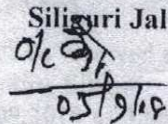 Siliguri Jal
O/c
05/9/18